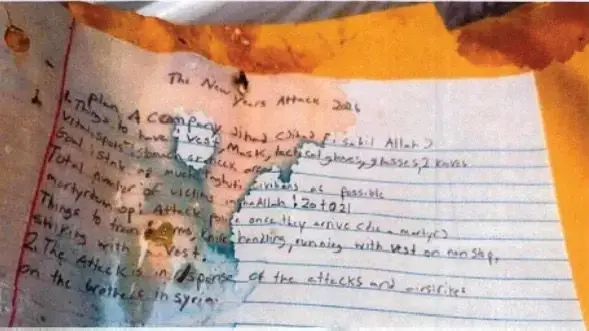 The New
Years Attack 2026
plan A Jihad (Jihad fi sabil Allah)
1. Things to have: vest, Mask, tactical gloves, glasses, 2 knives
vital spots: stomach neck
Goal: stab as much civilians as possible
Total number of victims inshaAllah: 20 to 21
martyrdom op: Attack police once they arrive (die a martyr)
Things to train: arms, knife handling, running with vest on non stop,
striking with vest.
2. The Attack is in of the attacks and airstrikes
on the brothers in syria.